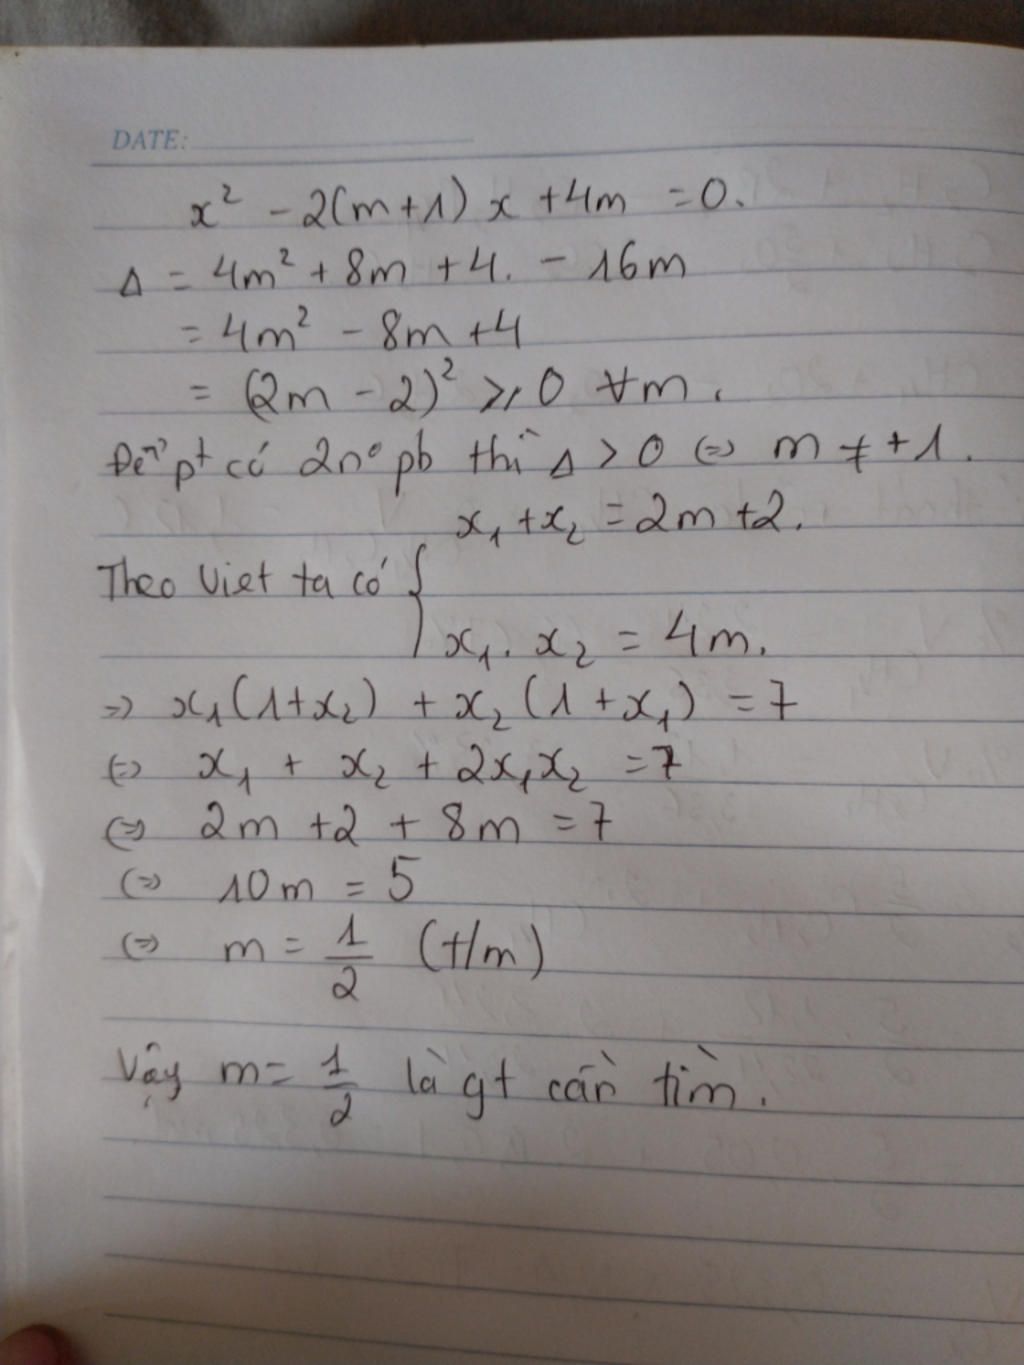 DATE:
x² - 2(m+1)x + 4m = 0.
Δ = 4m² + 8m + 4. - 16m
= 4m² - 8m + 4
= (2m - 2)² ⩾ 0 ∀m.
Để pt có 2n⁰ pb thì Δ > 0 (=) m ≠ +1.
x₁ + x₂ = 2m + 2.
Theo Viet ta có {
x₁. x₂ = 4m.
=> x₁(1+x₂) + x₂(1+x₁) = 7
(=) x₁ + x₂ + 2x₁x₂ = 7
(=) 2m + 2 + 8m = 7
(=) 10m = 5
(=) m = 1/2 (t/m)
Vậy m = 1/2 là gt cần tìm.